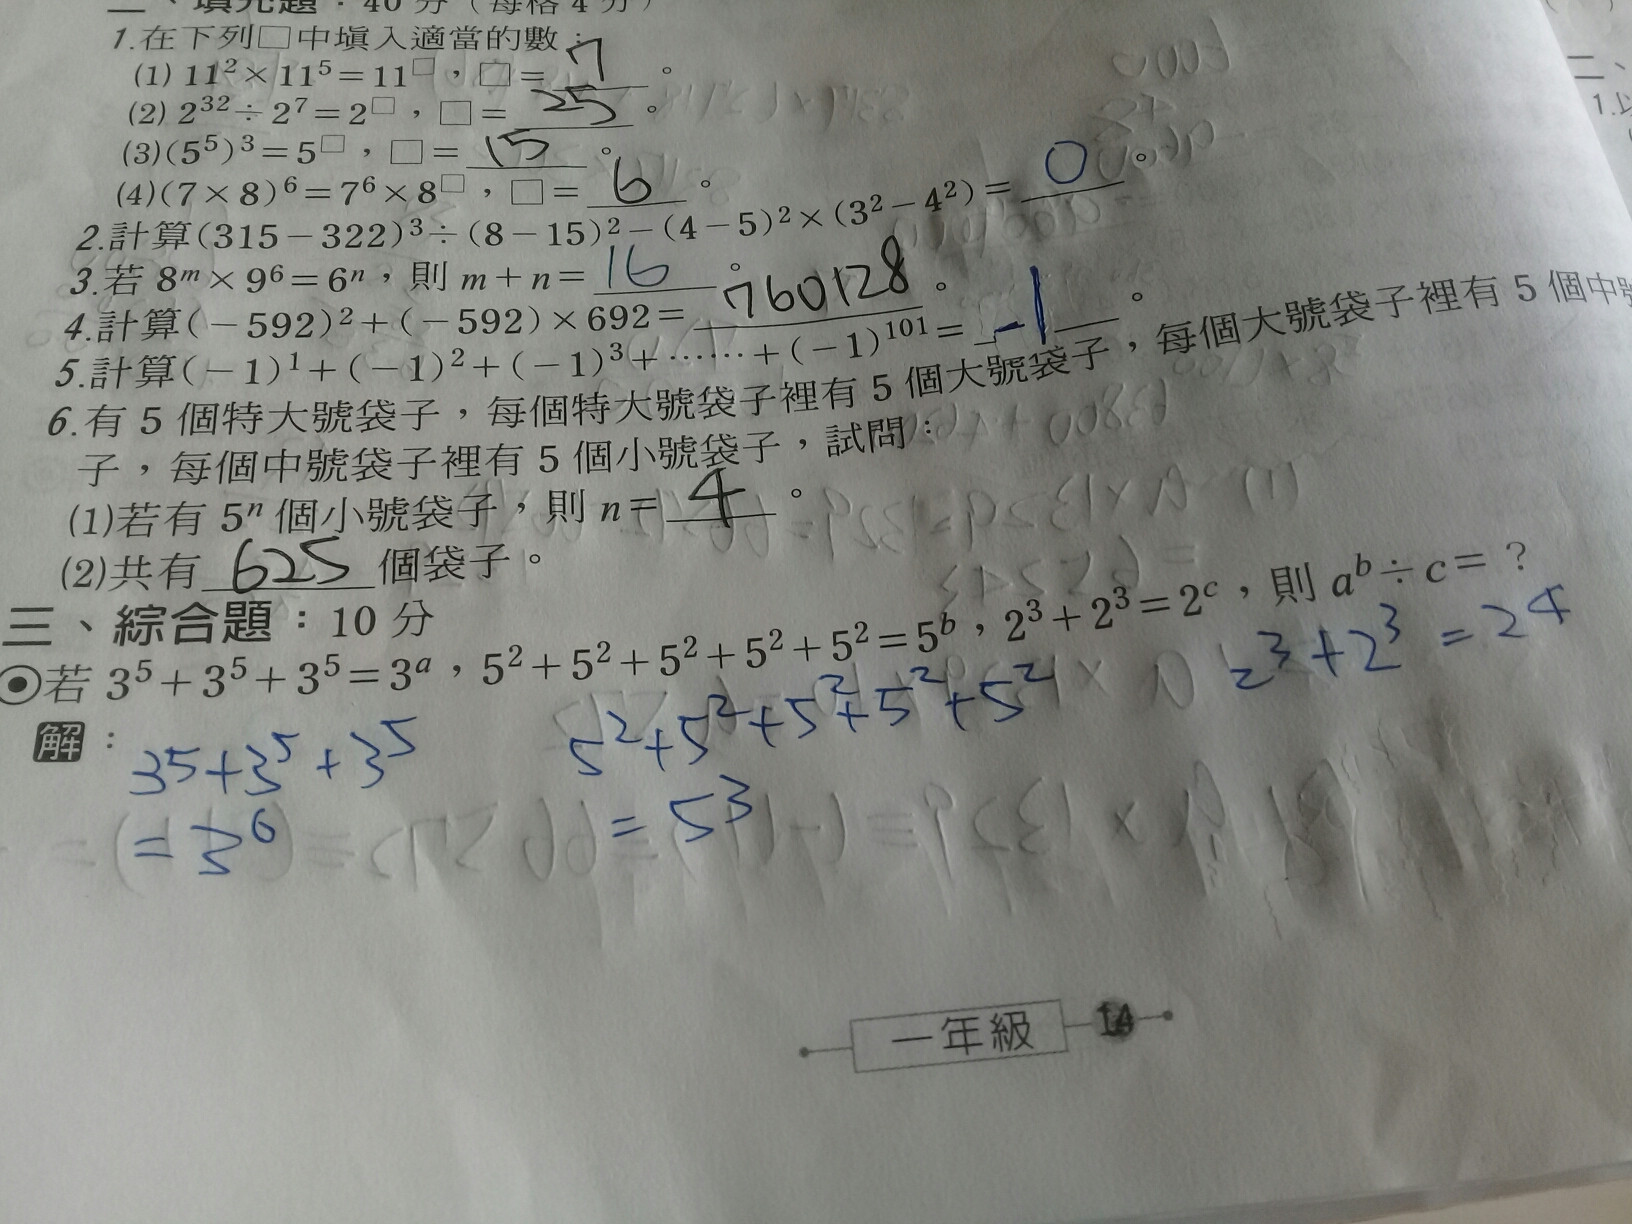 二、填充題：40 分（每格 4 分）
1.在下列□中填入適當的數：
(1) 11²×11⁵＝11□，□＝7。
(2) 2³²÷2⁷＝2□，□＝25。
(3)(5⁵)³＝5□，□＝15。
(4)(7×8)⁶＝7⁶×8□，□＝6。
2.計算(315－322)³÷(8－15)²－(4－5)²×(3²－4²)＝0。
3.若 8ᵐ×9⁶＝6ⁿ，則 m＋n＝16。
4.計算(－592)²＋(－592)×692＝760128。
5.計算(－1)¹＋(－1)²＋(－1)³＋……＋(－1)¹⁰¹＝-1。
6.有 5 個特大號袋子，每個特大號袋子裡有 5 個大號袋子，每個大號袋子裡有 5 個中號
子，每個中號袋子裡有 5 個小號袋子，試問：
(1)若有 5ⁿ 個小號袋子，則 n＝4。
(2)共有 625 個袋子。
三、綜合題：10 分
◉若 3⁵＋3⁵＋3⁵＝3ᵃ，5²＋5²＋5²＋5²＋5²＝5ᵇ，2³＋2³＝2ᶜ，則 aᵇ÷c＝？
解：
3⁵+3⁵+3⁵ 5²+5²+5²+5²+5² 2³+2³=2⁴
=3⁶ =5³
一年級 14
二、
1.以